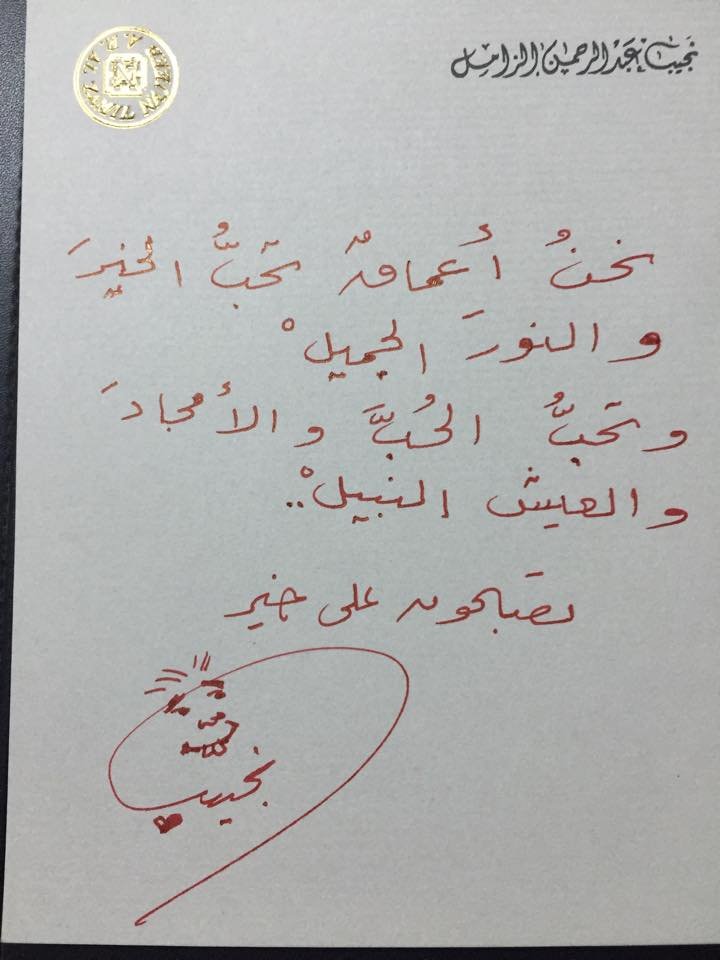 نجيب عبدالرحمن الزامل
نحنُ أعماقٌ تحبُّ الخيرَ
والنورَ الجميلْ
وتحبُّ الحُبَّ والأمجادَ
والعيش النبيلْ..
تصبحون على خير
نجيب